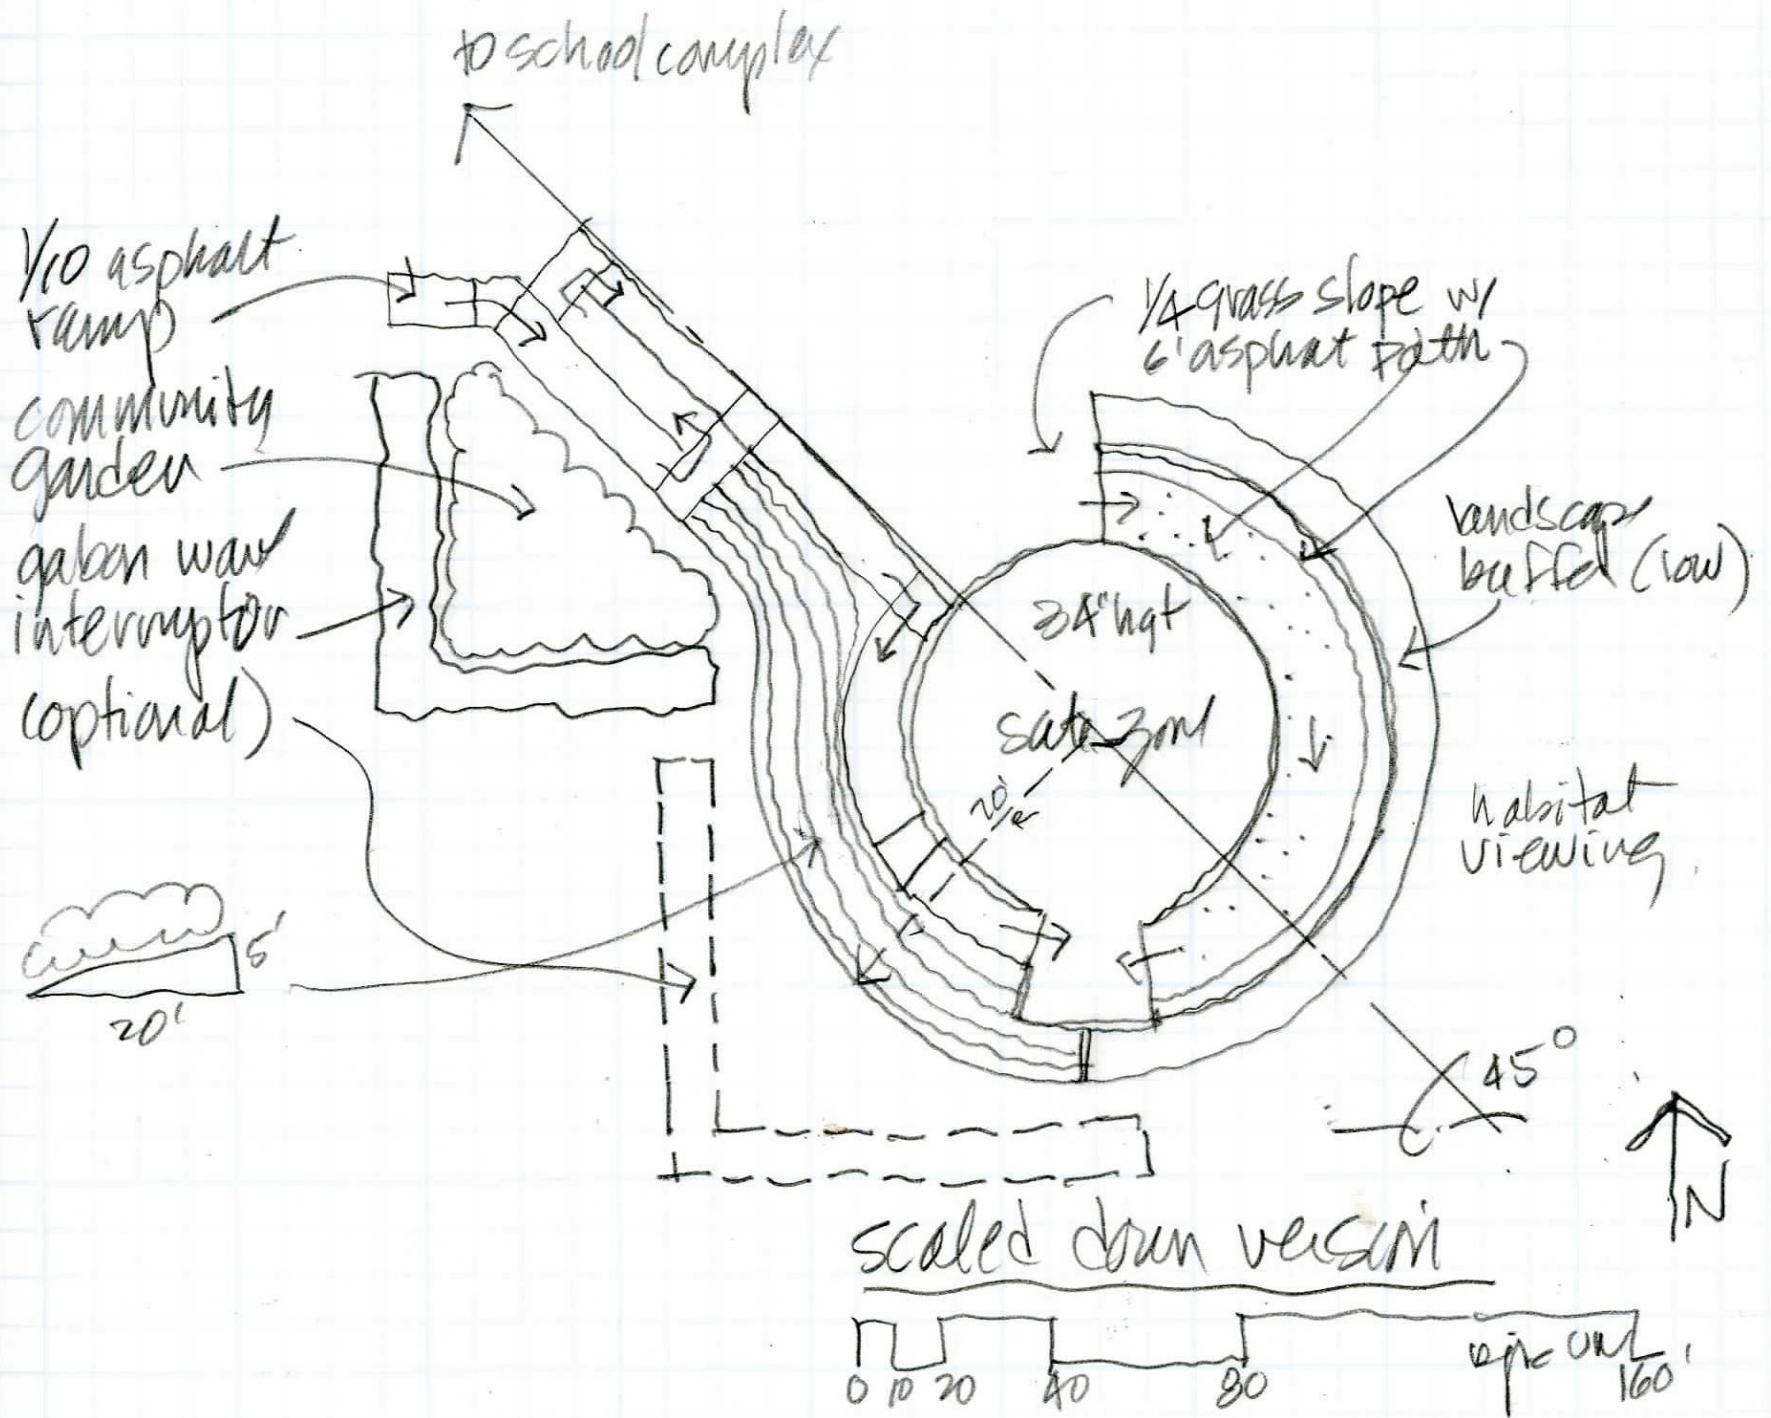 to school complex
1/10 asphalt
ramp
community
garden
gabon wave
interruptor
(optional)
5'
20'
1/4 grass slope w/
6' asphat path
landscape
buffer (low)
34' hgt
safe zone
20'
habitat
viewing
45°
N
scaled down version
0 10 20 40 80 160'